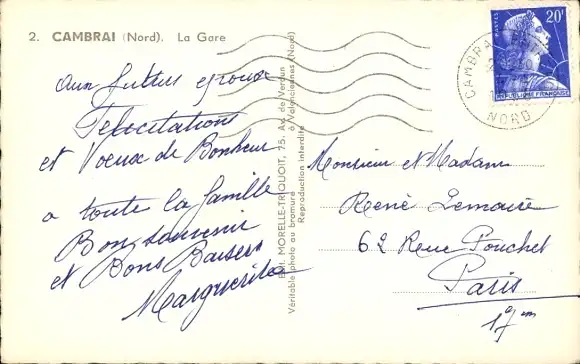 2. CAMBRAI (Nord). La Gare
Aux futurs epoux
Felicitations
et Voeux de Bonheur
a toute la famille
Bon souvenir
et Bons Baisers
Marguerite
Edit. MORELLE-TRIQUOIT, 75, Av. de Verdun
à Valenciennes (Nord)
Véritable photo au bromure
Reproduction interdite
20F
POSTES
REPUBLIQUE FRANÇAISE
CAMBRAI
NORD
Monsieur et Madame
René Lemaire
62 Rue Pouchet
Paris
17em